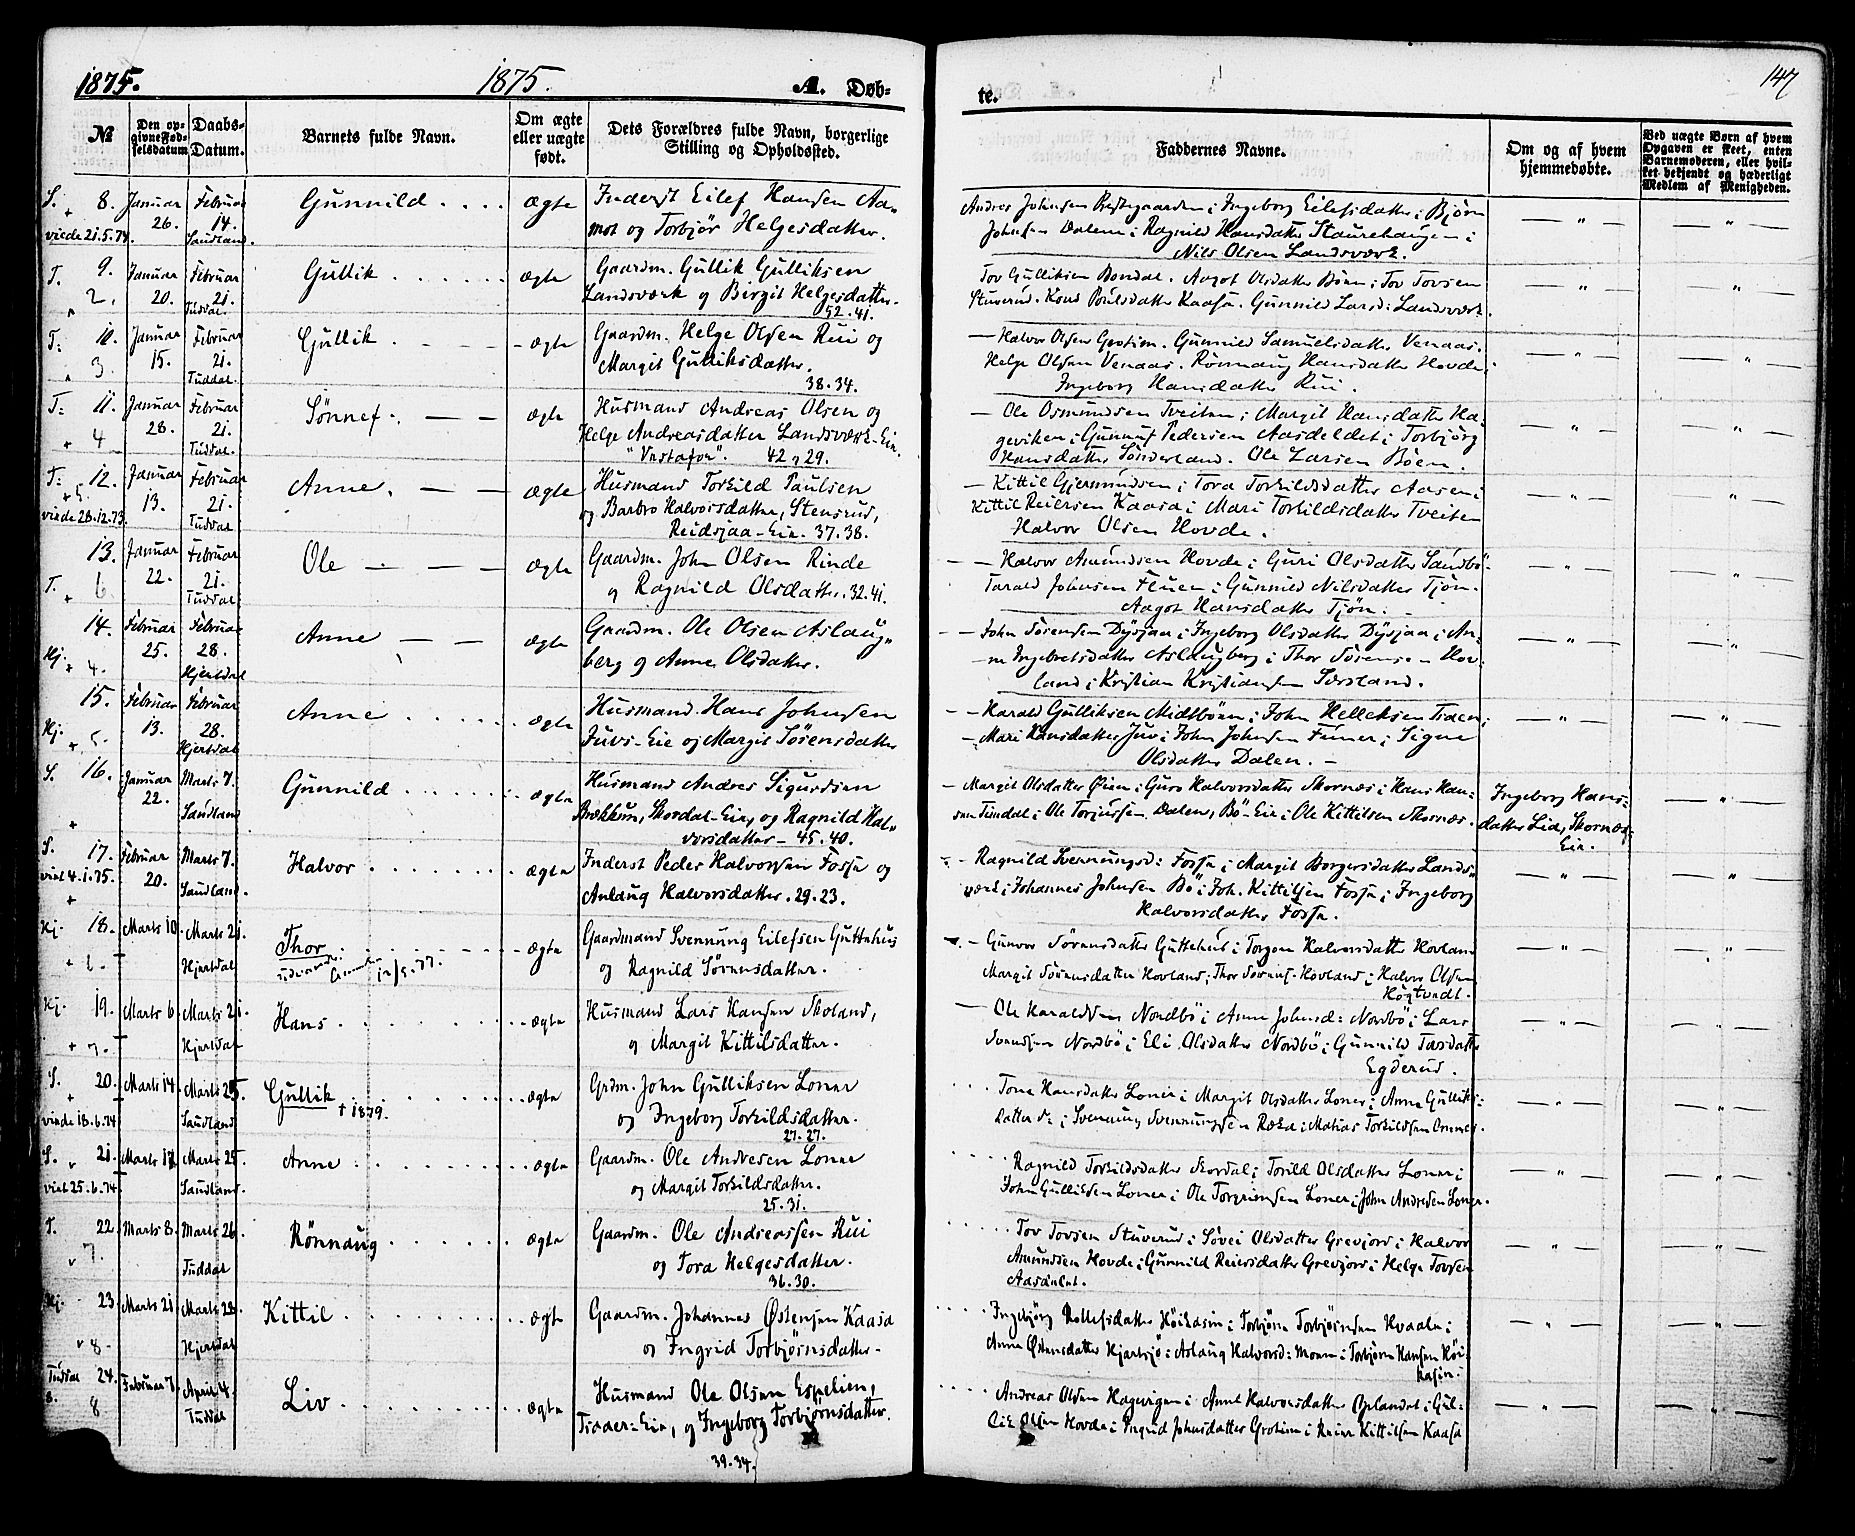 1875.
1875.
A. Døb-
№
Den op-
givne Fød-
selsdatum
Daabs-
Datum.
Barnets fulde Navn.
Om ægte
eller uægte
født.
Dets Forældres fulde Navn, borgerlige
Stilling og Opholdssted.
S. 8. Januar 26. Februar 14. Sandland.
viede 21.5.74.
Gunnild
ægte
Inderst Eilef Hansen Aa-
mot og Torbjør Helgesdatter.
T. 9. 2. Januar 20. Februar 21. Tuddal.
Gullik
ægte
Gaardm. Gullik Gulliksen
Landsværk og Birgit Helgesdatter.
52.41.
T. 10. 3. Januar 15. Februar 21. Tuddal.
Gullik
ægte
Gaardm. Helge Olsen Rui og
Margit Gulliksdatter.
38.34.
T. 11. 4 Januar 28. Februar 21. Tuddal.
Sønnef.
ægte
Husmand Andreas Olsen og
Helge Andreasdatter Landsværk-Eie.
42 29.
T. 12. 5. Januar 13. Februar 21. Tuddal
viede 28.12.73.
Anne.
ægte
Husmand Torkild Paulsen
og Barbro Halvorsdatter, Stensrud,
Reidsjaa-Eie. 37.38.
T. 13. 6 Januar 22. Februar 21. Tuddal
Ole
ægte
Gaardm. John Olsen Rinde
og Ragnild Olsdatter. 32.41.
Hj. 14. 4. Februar 25. Februar 28. Hjertdal
Anne
ægte
Gaardm. Ole Olsen Aslaug-
berg og Anne Olsdatter.
Hj. 15. 5. Februar 13. Februar 28. Hjertdal
Anne
ægte
Husmand Hans Johnsen
Juvs-Eie og Margit Sørensdatter
S. 16. Januar 22. Marts 7. Sandland
Gunnild
ægte
Husmand Andres Sigurdsen
Brækkun, Skordal-Eie, og Ragnild Hal-
vorsdatter - 45.40.
S. 17. Februar 20. Marts 7. Sandland.
viet 4.1.75.
Halvor
ægte
Inderst Peder Halvorsen Fossa og
Anlaug Halvorsdatter. 29.23.
Hj. 18. 6. Marts 10. Marts 21. Hjertdal
Thor
12/5.77.
ægte
Gaardmand Svennung Eilefsen Guttehus
og Ragnild Sørensdatter.
Hj. 19. 7. Marts 6. Marts 21. Hjertdal
Hans
ægte
Husmand Lars Hansen Skoland,
og Margit Kittilsdatter.
S. 20. Marts 14. Marts 25. Sandland
viede 18.6.74
Gullik
† 1879.
ægte
Grdm. John Gulliksen Loner
og Ingeborg Torkildsdatter.
27.27.
S. 21. Marts 12 Marts 25. Sandland.
viet 25.6.74.
Anne
ægte
Gaardm. Ole Andresen Loner
og Margit Torkildsdatter.
25.31.
T. 22. 7. Marts 8. Marts 26. Tuddal
Rønnaug
ægte
Gaardm. Ole Andreassen Rui
og Tora Helgesdatter.
36.30.
Hj. 23. 8. Marts 21. Marts 28. Hjertdal
Kittil
ægte
Gaardm. Johannes Østensen Kaasa
og Ingrid Torbjørnsdatter-
Tuddal 24. 8 Februar 7. April 4. Tuddal
Liv
ægte
Husmand Ole Olsen Espelien,
og Ingeborg Torbjørnsdatter.
39.34.
te.
147
Faddernes Navne.
Om og af hvem
hjemmedøbte.
Ved uægte Børn af hvem
Opgaven er skeet, enten
Barnemoderen, eller hvil-
ket bekjendt og hæderligt
Medlem af Menigheden.
Andres Johnsen Prestegaarden; Ingeborg Eilefsdatter; Bjørn
Johnsen Dalen; Ragnild Hansdatter Staurehaugen;
Nils Olsen Landsværk.
Tov Gulliksen Bondal. Aagot Olsdatter Bøen; Tov Tovsen
Stuverud. Poulsdatter Kaasa. Gunnild Larsd: Landsværk.
Halvor Olsen Grotim. Gunnild Samuelsdatter Venaas.
Helge Olsen Venaas. Rønnaug Hansdatter Hovde;
Ingeborg Hansdatter Rui.
Ole Osmundsen Tveiten; Margit Hansdatter Ha-
geviken; Gunnuf Pedersen Aasdeldet; Torbjørg
Hansdatter Sønderland. Ole Larsen Bøen.
Kittil Gjermundsen; Tora Torkildsdatter Aasen;
Kittil Reiersen Kaasa; Mari Torkildsdatter Tveiten
Halvor Olsen Hovde.
Halvor Amundsen Hovde; Guri Olsdatter Sandbø.
Tarald Johnsen Fluen; Gunnild Nilsdatter Tjøn.
Aagot Hansdatter Tjøn.
John Sørensen Dysjaa; Ingeborg Olsdatter Dysjaa; An-
ne Ingebretsdatter Aslaugberg; Thor Sørensen Hov-
land; Kristian Kristiansen Sørsland.
Harald Gulliksen Midtbøen; John Helleksen Traen;
Mari Hansdatter Juv; John Johnsen; Signe
Olsdatter Dalen.
Margit Olsdatter Øien; Guro Halvorsdatter Skornæs; Hans Han-
sen Tundal; Ole Torjussen Dalen, Bø-Eie; Ole Kittilsen Skornæs.
Ingeborg Hans-
datter Lia, Skornæs-
Eie.
Ragnild Svennungsd: Fossa; Margit Borgersdatter Lands-
værk; Johannes Johnsen Bø; Joh. Kittilsen Fossa; Ingeborg
Halvorsdatter Fossa.
Gunvor Sørensdatter Guttehus; Torgon Halvorsdatter Hovland
Margit Sørensdatter Hovland; Thor Sørens. Hovland; Halvor Olsen
Høgtvedt.
Ole Haraldsen Nordbø; Anne Johnsd: Nordbø; Lars
Svendsen Nordbø; Eli Olsdatter Nordbø; Gunnild Tovsdatter
Egderud.
Tone Hansdatter Loner; Margit Olsdatter Loner; Anne Gulliks-
datter do; Svennung Svennungsen; Matias Torkildsen
Ragnild Torkildsdatter Skordal; Torild Olsdatter Loner;
John Gulliksen Loner; Ole Torgrimsen Loner; John Andresen Loner.
Tov Tovsen Stuverud; Søvei Olsdatter Grevjord; Halvor
Amundsen Hovde; Gunnild Reiersdatter Grevjord; Helge Tovsen
Aasdalet.
Ingebjørg Rollefsdatter Høikasin; Torbjørn Torbjørnsen Hvaale;
Anne Østensdatter Hjartsjø; Aslaug Halvorsd: Moen; Torbjørn Hansen Høi-
kasin.
Andreas Olsen Hagevigen; Anne Halvorsdatter Oplandet; Gul-
lik Olsen Hovde; Ingrid Johnsdatter Grotim; Reier Kittilsen Kaasa